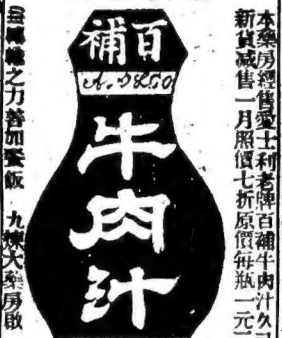 本藥房經售愛士利老牌百補牛肉汁久已
新貨减售一月照價七折原價每瓶一元二
百補
牛肉汁
之力善加餐飯 九大藥房啟